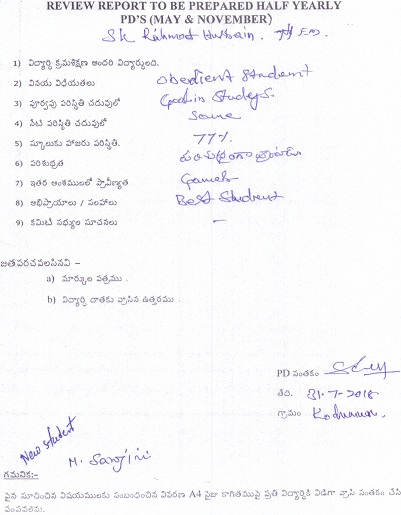 REVIEW REPORT TO BE PREPARED HALF YEARLY
PD'S (MAY & NOVEMBER)
Sk Rahmat Hussain.
1) విద్యార్థి క్రమశిక్షణ అందరి విద్యార్థులది.
2) వినయ విధేయతలు obedient student
3) పూర్వపు పరిస్థితి చదువులో Good in Studeys.
4) నేటి పరిస్థితి చదువులో Same
5) స్కూలుకు హాజరు పరిస్థితి. 77%
6) పరిశుభ్రత
7) ఇతర అంశములలో ప్రావీణ్యత Games
8) అభిప్రాయాలు / సలహాలు Best Student
9) కమిటీ సభ్యుల సూచనలు -
జతపరచవలసినవి –
a) మార్కుల పత్రము .
b) విద్యార్థి దాతకు వ్రాసిన ఉత్తరము .
PD సంతకం
తేది. 31-7-2018
గ్రామం
New student
M. Sanjini
గమనిక:-
పైన సూచించిన విషయములకు సంబంధించిన వివరణ A4 సైజు కాగితముపై ప్రతి విద్యార్థికి విడిగా వ్రాసి సంతకం చేసి
పంపవలెను.